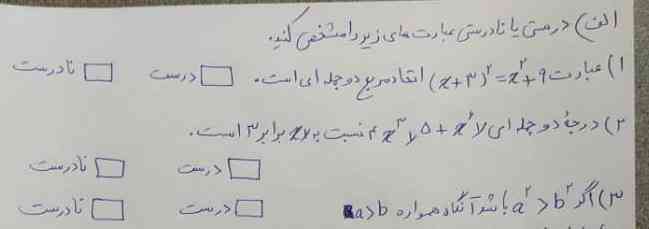 الف) درستی یا نادرستی عبارت های زیر را مشخص کنید.
۱) عبارت (x+۳)^۲ = x^۲+۹ اتحاد مربع دو جمله ای است. درست نادرست
۲) درجهٔ دو جمله ای ۴x^۳y^۵ + x^۲y نسبت به x برابر ۳ است.
درست نادرست
۳) اگر a^۲ > b^۲ باشد آنگاه همواره a>b درست نادرست